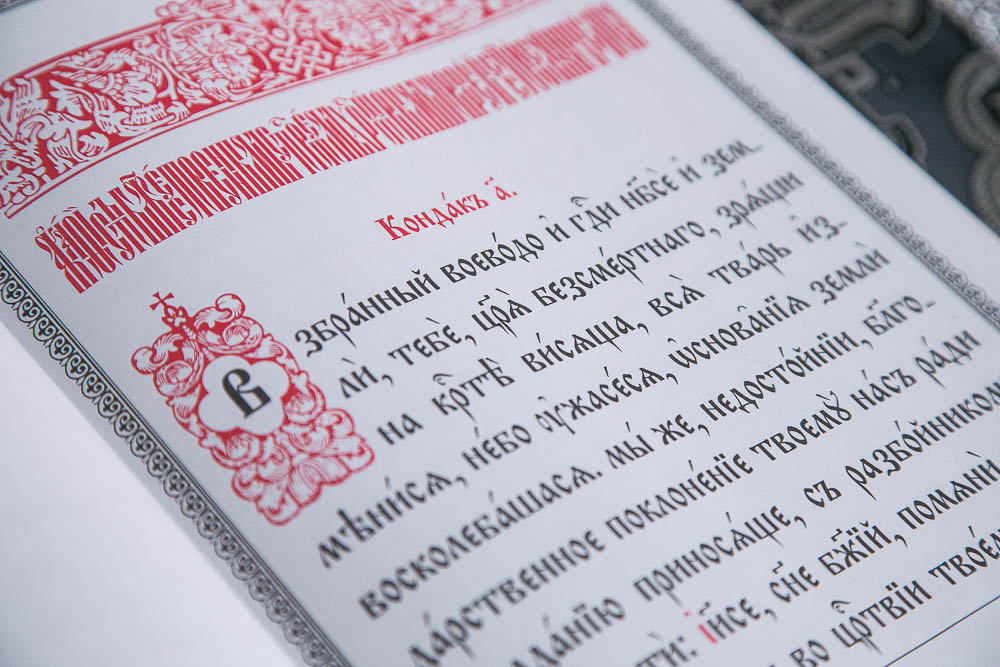 Конда́къ а҃.
Взбра́нный воево́до и҆ гдⷭ҇и нб҃сѐ и҆ зем-
лѝ, тебѐ, цр҃ѧ̀ безсме́ртнаго, зрѧ́щи
на крⷭ҇тѣ̀ ви́сѧща, всѧ̀ тва́рь и҆з-
мѣни́сѧ, не́бо ᲂу҆жасе́сѧ, ѡ҆снова̑нїѧ землѝ
восколеба́шасѧ. мы́ же, недосто́йнїи, бл҃го-
да́рственное поклоне́нїе твоемꙋ̀ на́съ ра́ди
приносѧ́ще, съ разбо́йником
ти: і҆и҃се, сн҃е бж҃їй, помѧнѝ
во црⷭ҇твїи твое́м